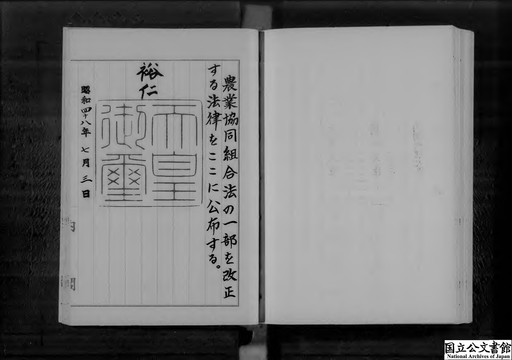 農業協同組合法の一部を改正
する法律をここに公布する。
裕仁
天皇
御璽
昭和四十八年七月三日
国立公文書館
National Archives of Japan